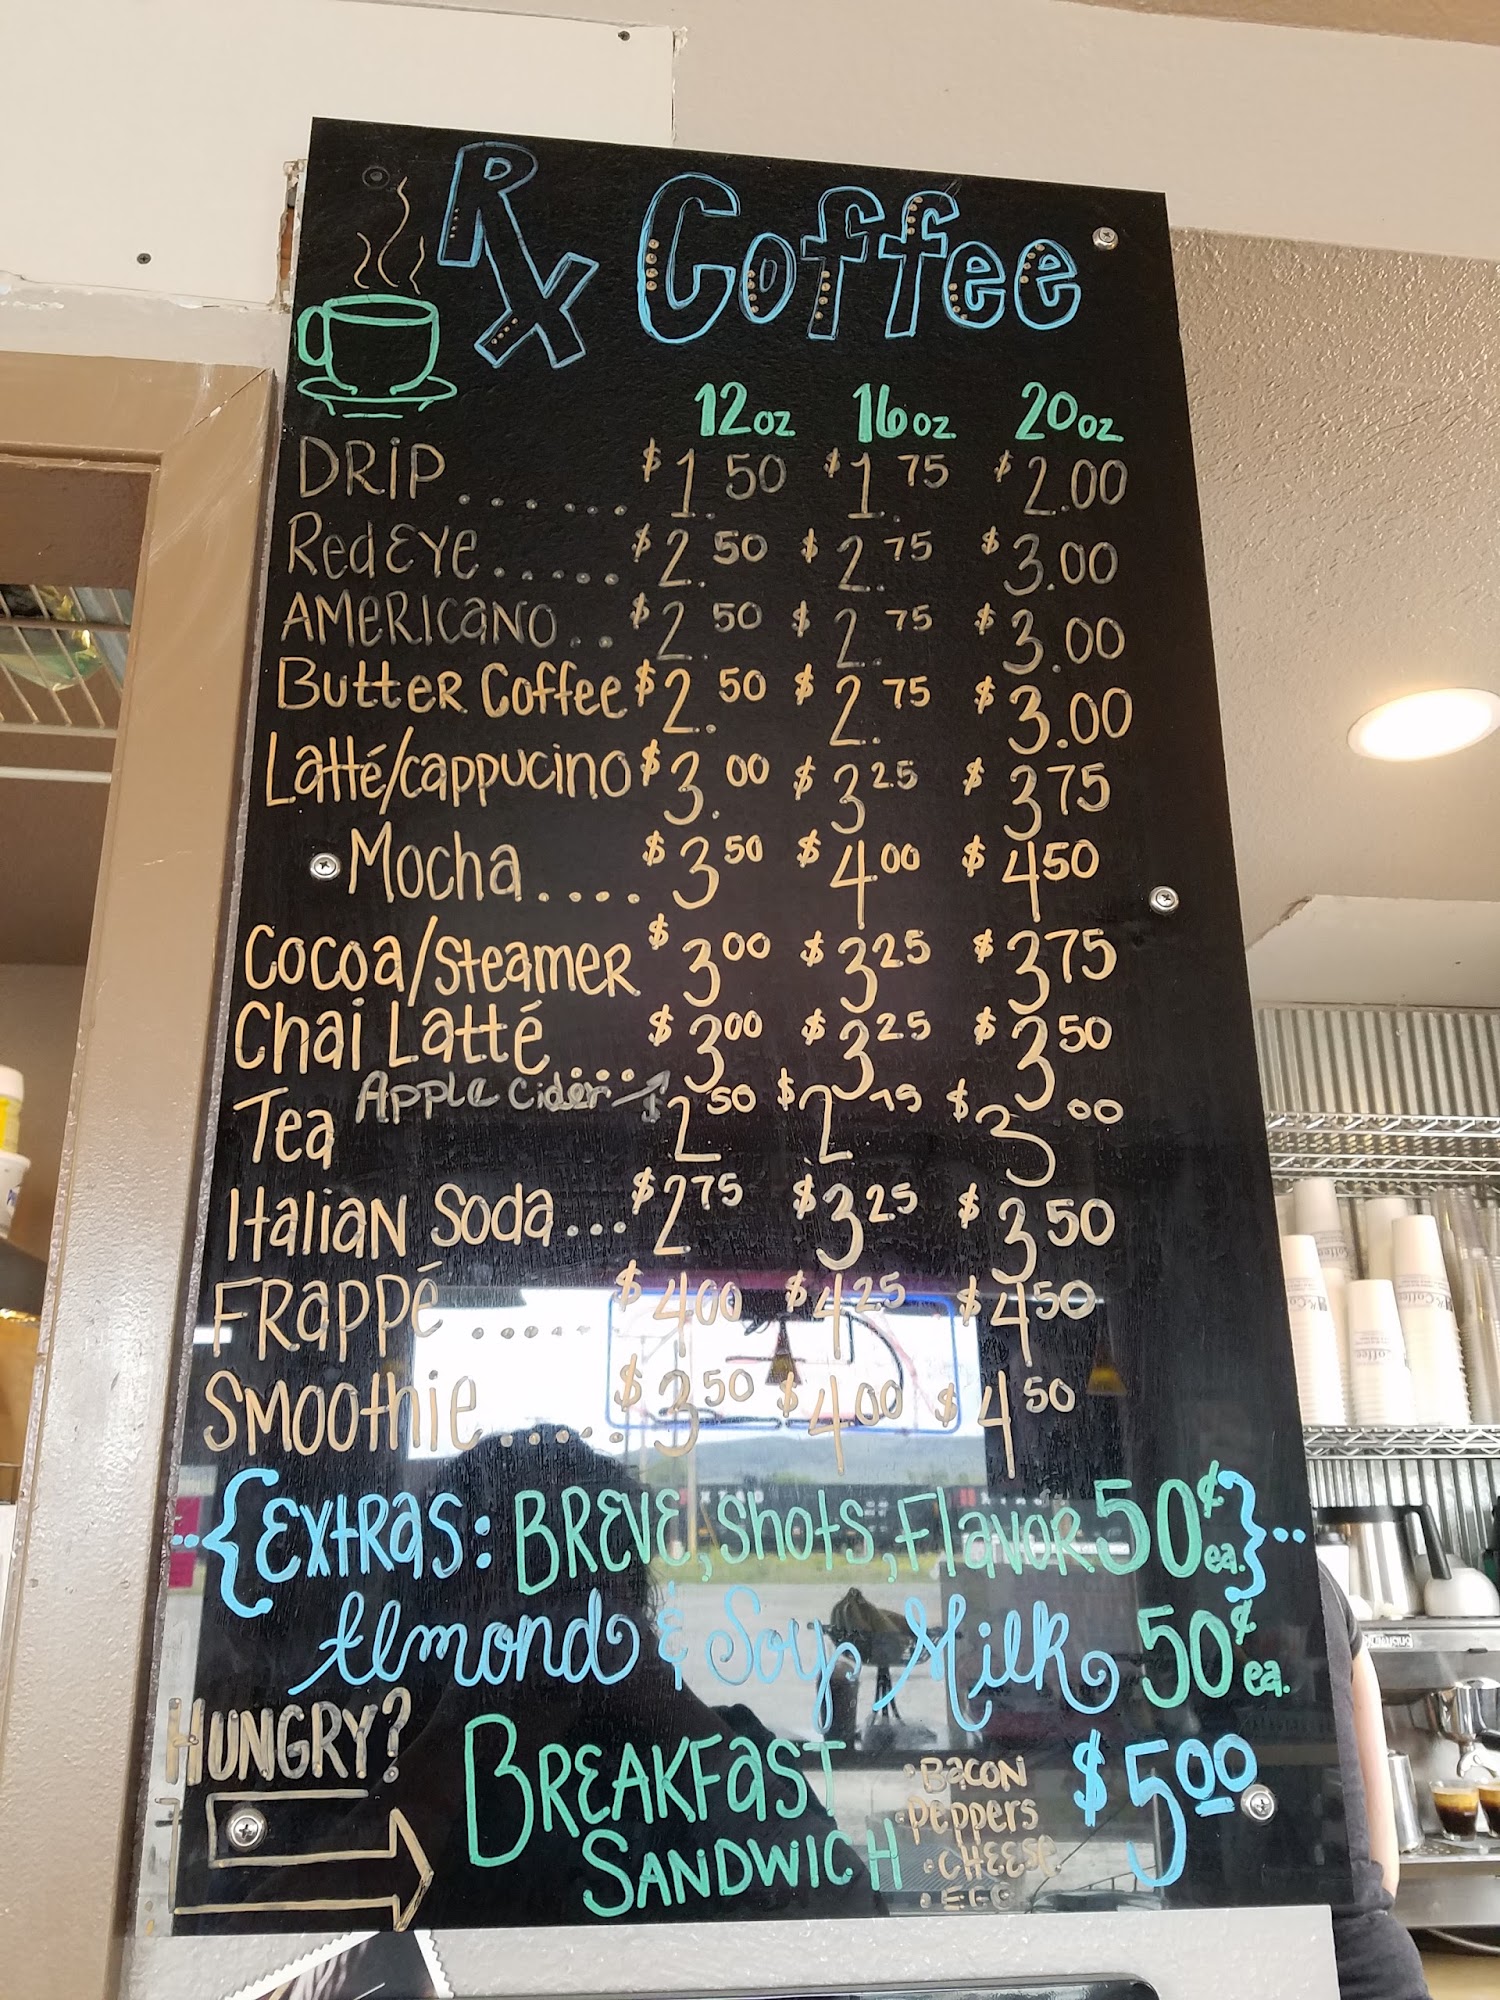 Rx Coffee
12oz 16oz 20oz
DRIP...... $1.50 $1.75 $2.00
RedEYe...... $2.50 $2.75 $3.00
AMERICANO.. $2.50 $2.75 $3.00
Butter Coffee $2.50 $2.75 $3.00
Latté/cappucino $3.00 $3 25 $3 75
Mocha.... $3 50 $4 00 $4 50
Cocoa/Steamer $3 00 $3 25 $3 75
Chai Latté.... $3 00 $3 25 $3 50
Apple Cider
Tea $2 50 $2 75 $3 00
Italian Soda... $2 75 $3 25 $3 50
FRappé ..... $4 00 $4 25 $4 50
Smoothie..... $3 50 $4 00 $4 50
{Extras: BREVE, Shots, Flavor 50¢ ea.}
Almond & Soy Milk 50¢ ea.
HUNGRY?
BREAKFAST SANDWICH $5 00
• BACON
• Peppers
• CHEESE
• EGG